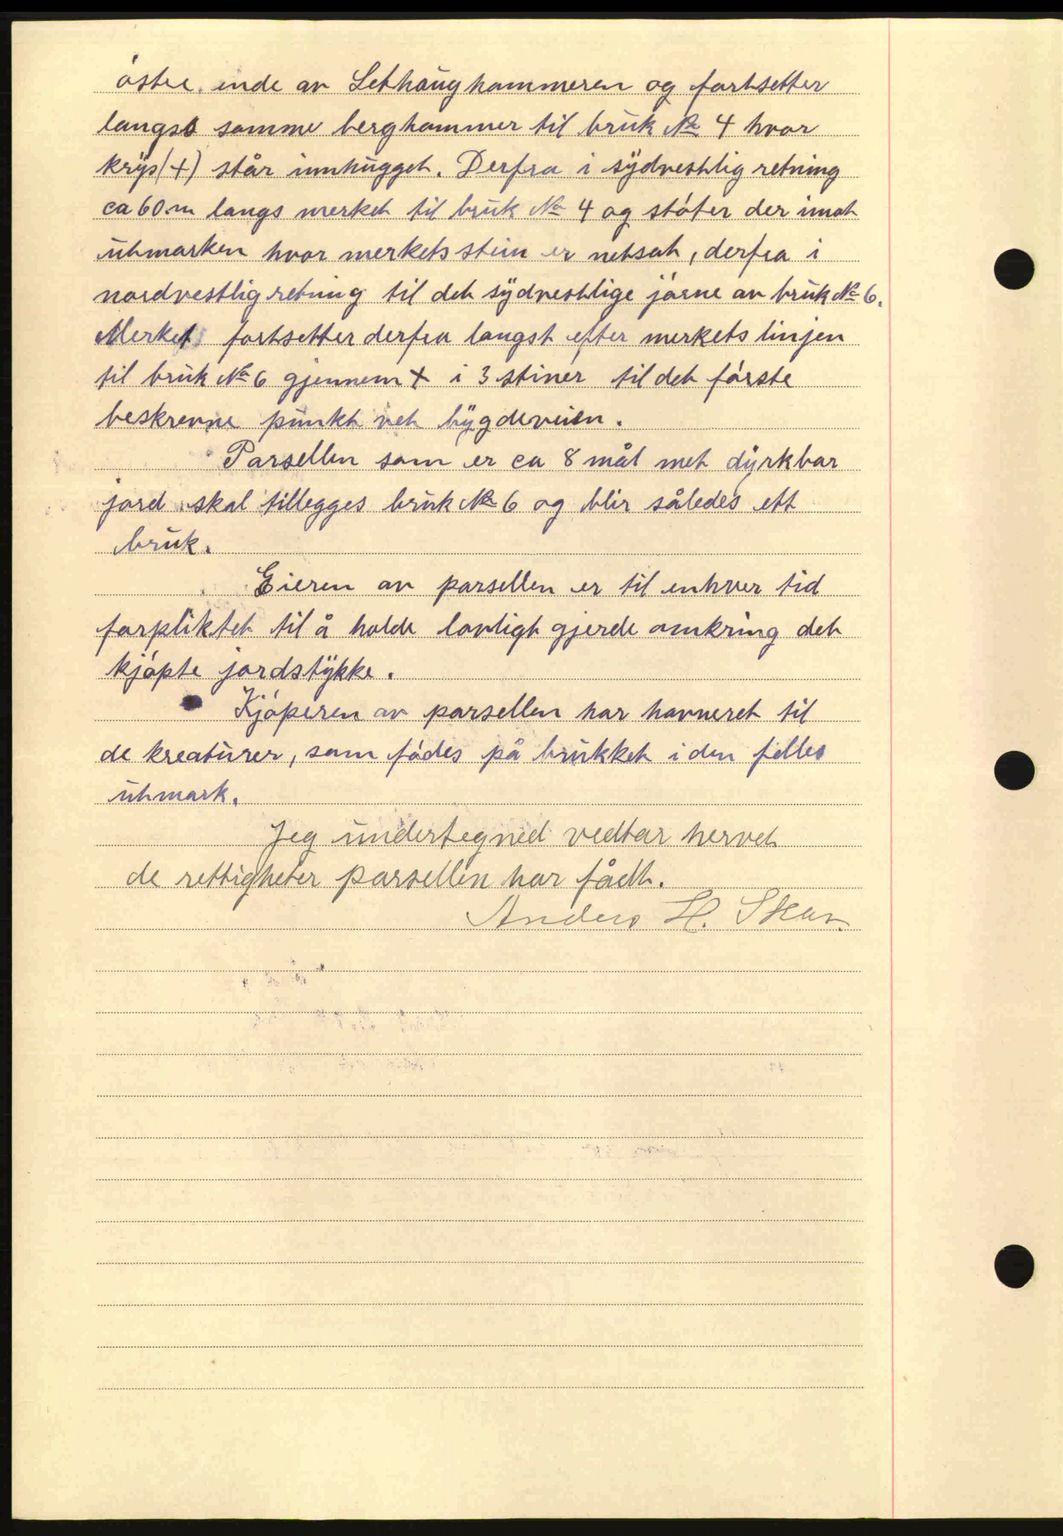 östre ende av Sethaughammeren og fortsetter
langs samme berghammer til bruk № 4 hvor
kryss(+) står innhugget. Derfra i sydvestlig retning
ca 60 m langs merket til bruk № 4 og støter der imot
utmarken hvor merketsstein er netsatt, derfra i
nordvestlig retning til det sydvestlige järne av bruk № 6.
Merket fortsetter derfra langst efter merkets linjen
til bruk № 6 gjennem + i 3 stiner til det første
beskrevne punkt vet bygdeveien.
Parsellen som er ca 8 mål met dyrkbar
jord skal tillegges bruk № 6 og blir således ett
bruk.
Eieren av parsellen er til enhver tid
forpliktet til å holde lovligt gjerde omkring det
kjøpte jordstykke.
Kjøperen av parsellen har havneret til
de kreaturer, som fødes på brukket i den felles
utmark.
Jeg undertegned vedtar hervet
de rettigheter parsellen har fådt.
Anders H. Skar.